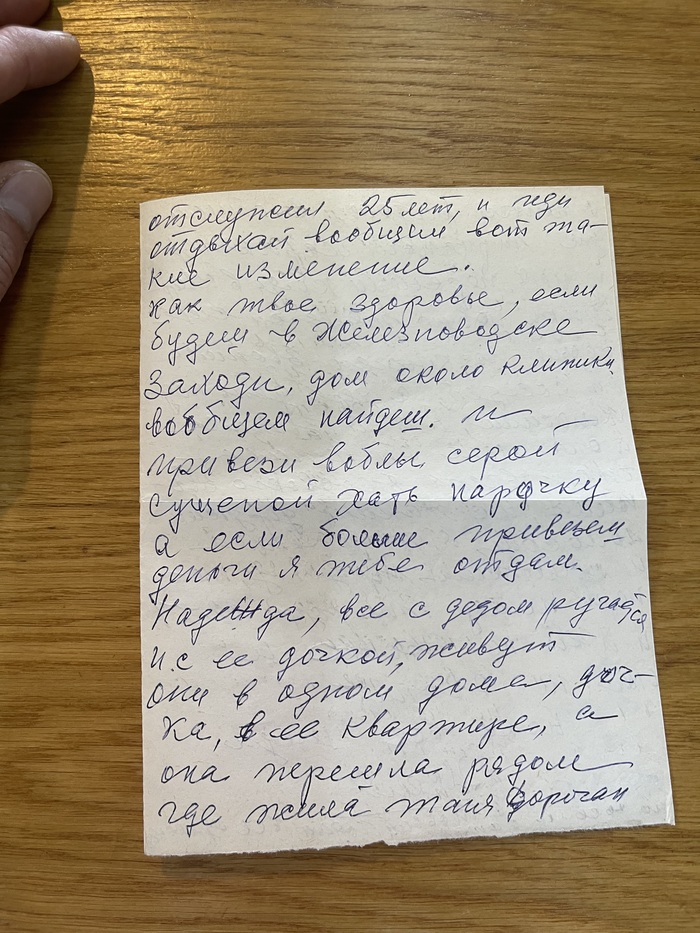 отслужил 25 лет, и иди
отдыхай вообщем вот та-
кие изменение.
как твое здоровье, если
будеш в Железноводске
заходи, дом около клиники
вообщем найдеш. и
привези воблы серой
сущеной хать парочку
а если больше привезеш
деньги я тебе отдам.
Надежда, все с дедом ругается
и с ее дочкой, живут
они в одном доме, доч-
ка, в ее квартире, а
она перешла рядом
где жила таня